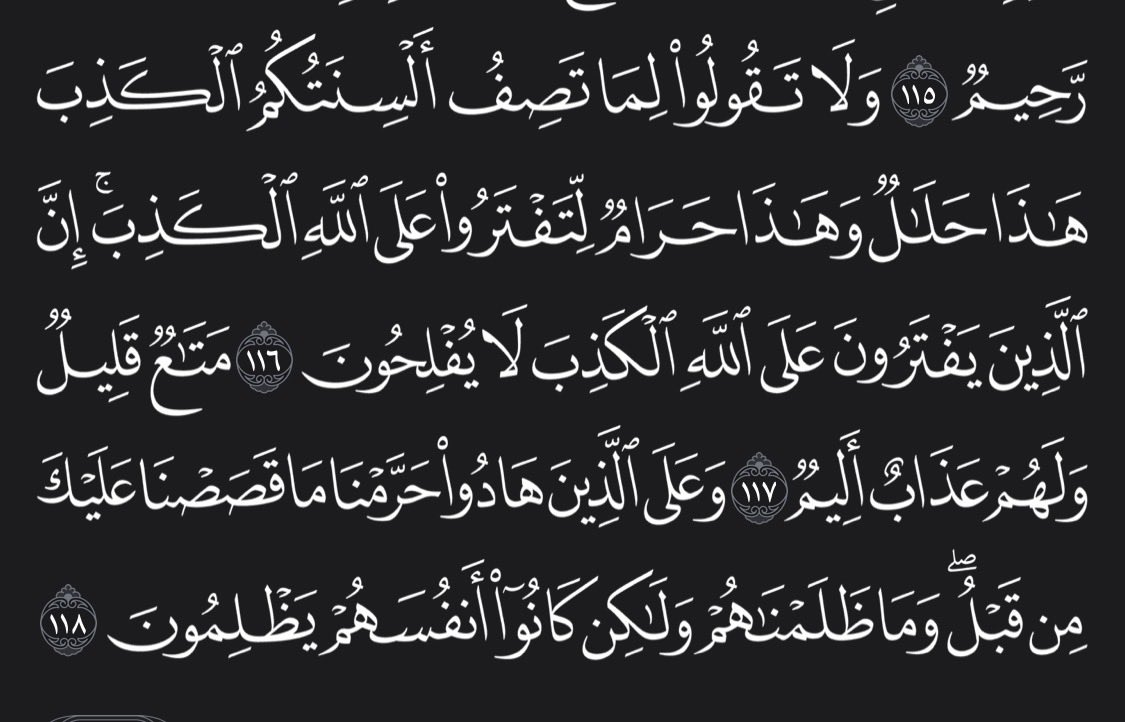 رَّحِيمٌ ١١٥ وَلَا تَقُولُوا۟ لِمَا تَصِفُ أَلْسِنَتُكُمُ ٱلْكَذِبَ
هَـٰذَا حَلَـٰلٌ وَهَـٰذَا حَرَامٌ لِّتَفْتَرُوا۟ عَلَى ٱللَّهِ ٱلْكَذِبَ ۚ إِنَّ
ٱلَّذِينَ يَفْتَرُونَ عَلَى ٱللَّهِ ٱلْكَذِبَ لَا يُفْلِحُونَ ١١٦ مَتَـٰعٌ قَلِيلٌ
وَلَهُمْ عَذَابٌ أَلِيمٌ ١١٧ وَعَلَى ٱلَّذِينَ هَادُوا۟ حَرَّمْنَا مَا قَصَصْنَا عَلَيْكَ
مِن قَبْلُ ۖ وَمَا ظَلَمْنَـٰهُمْ وَلَـٰكِن كَانُوٓا۟ أَنفُسَهُمْ يَظْلِمُونَ ١١٨